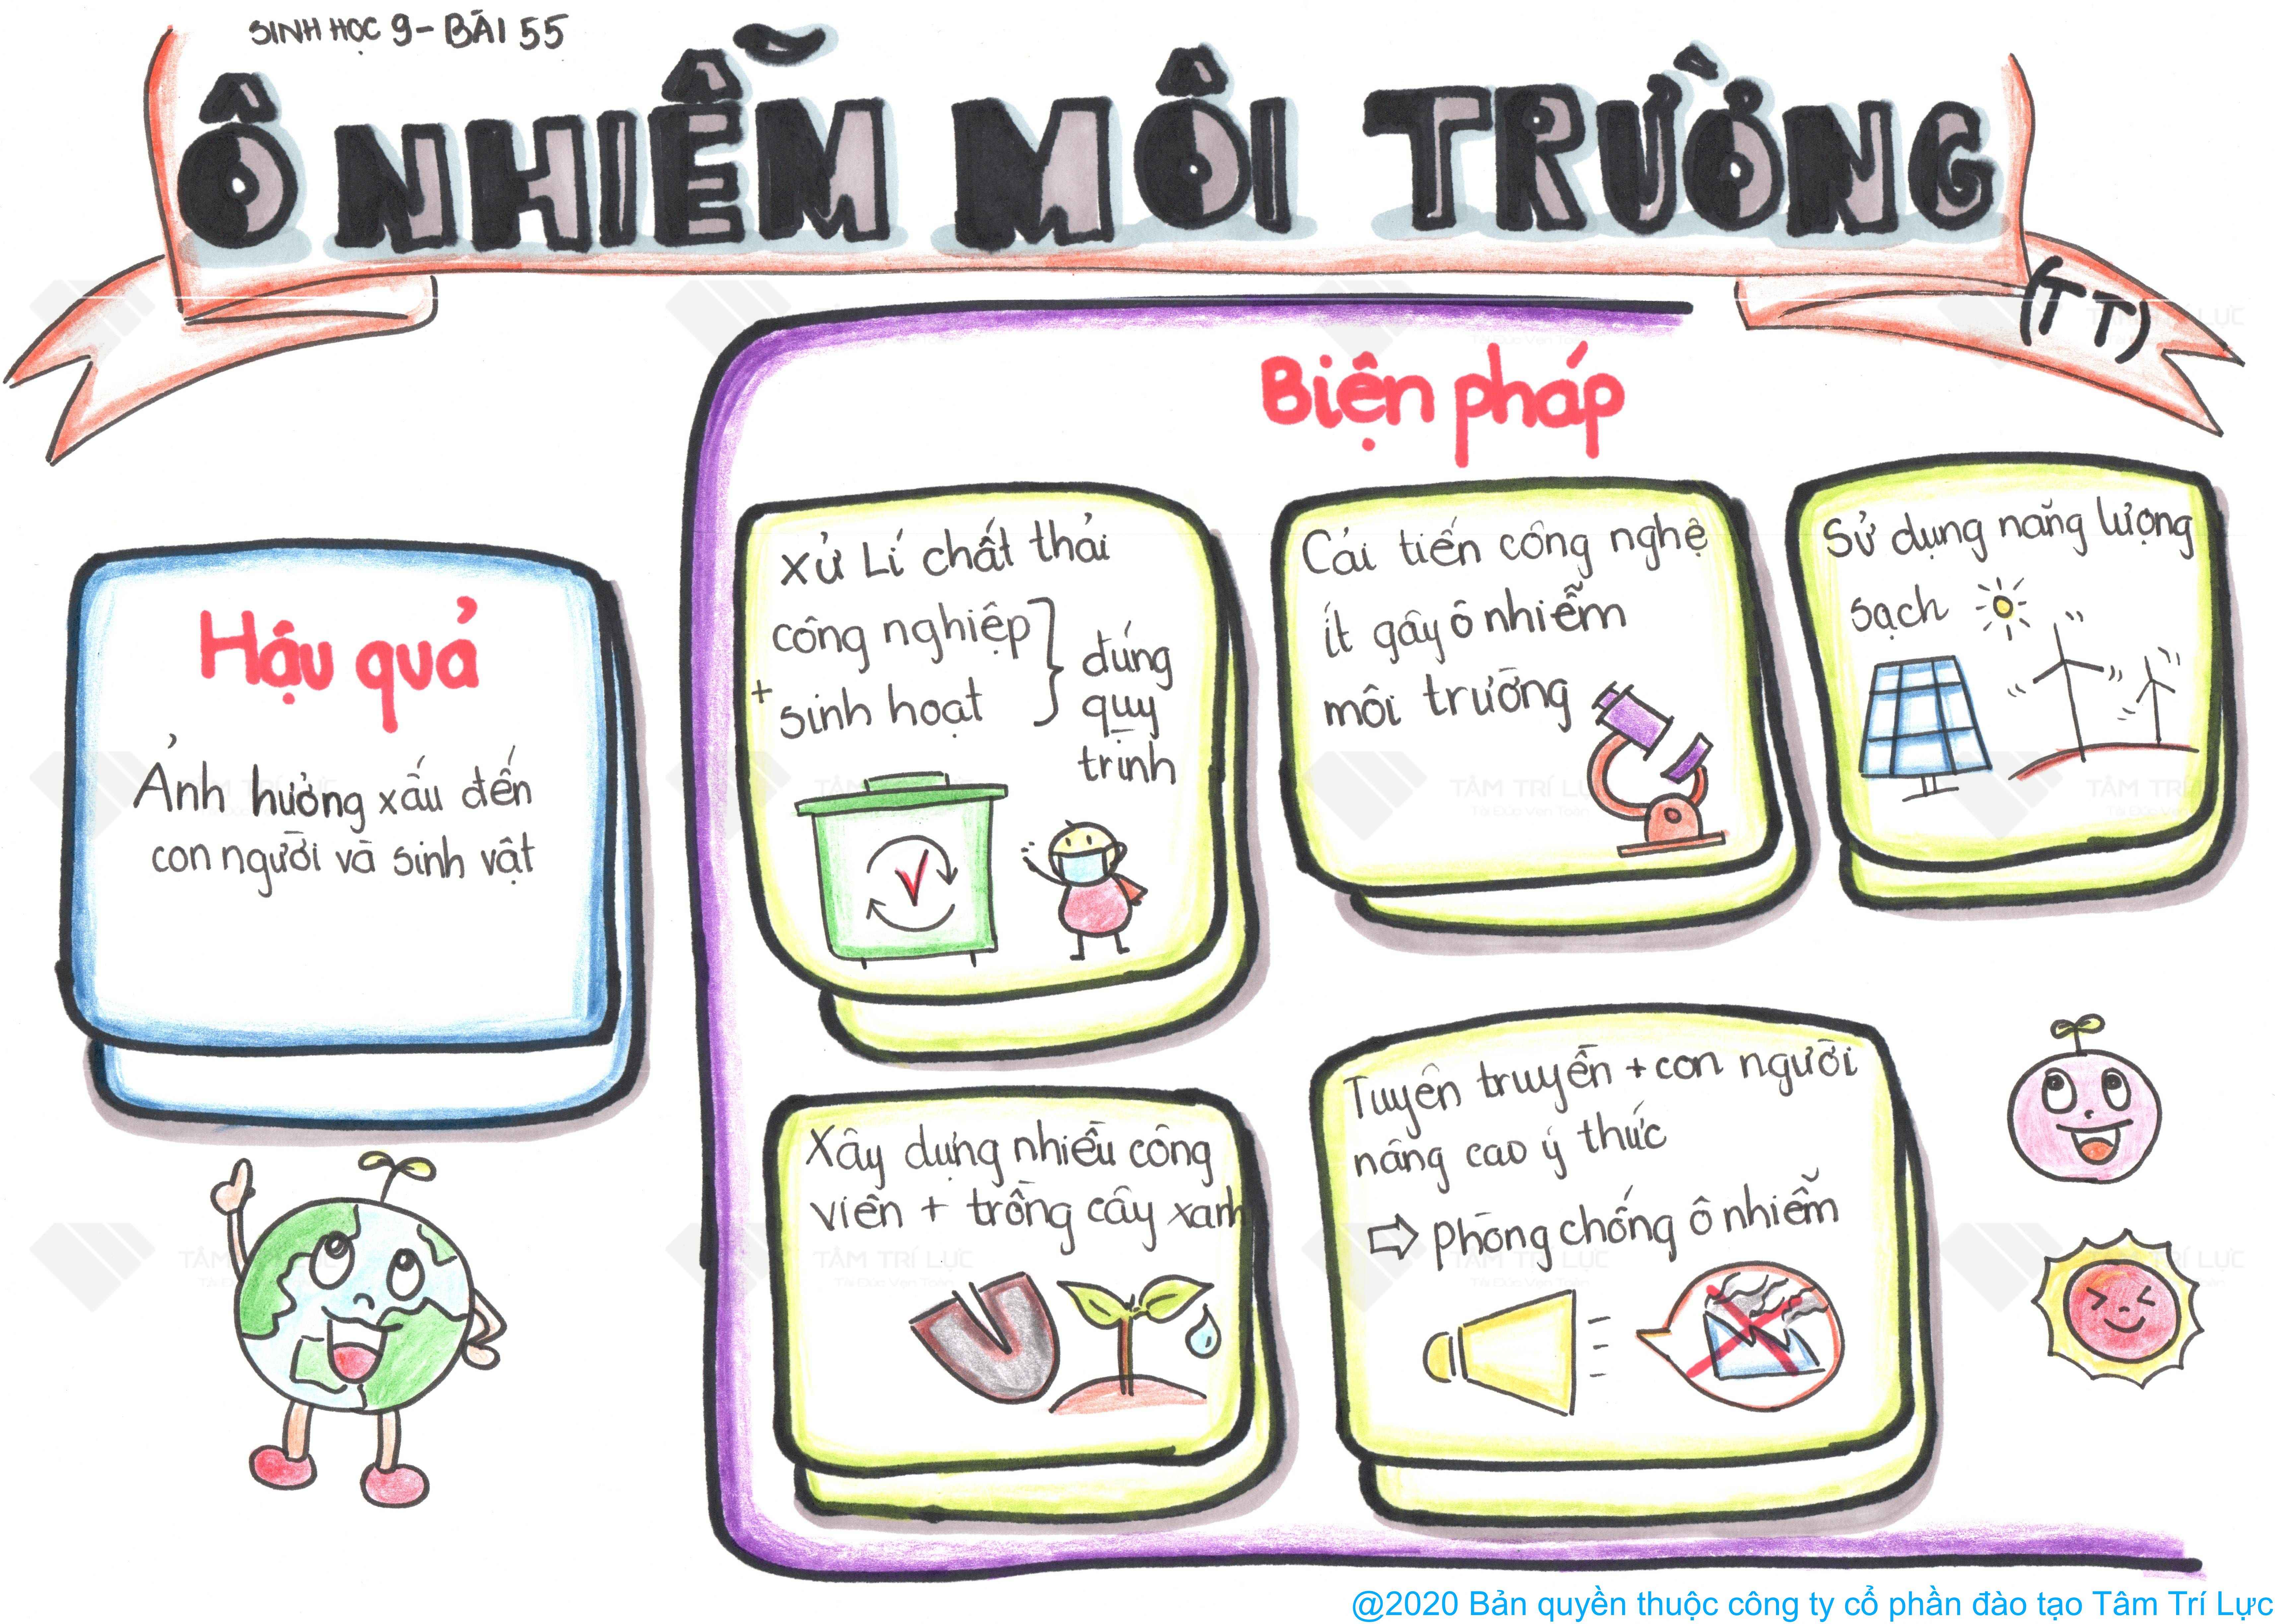 SINH HỌC 9 - BÀI 55
Ô NHIỄM MÔI TRƯỜNG
(TT)
Hậu quả
Ảnh hưởng xấu đến
con người và sinh vật
Biện pháp
Xử Lí chất thải
công nghiệp
+ sinh hoạt
} đúng
quy
trình
Cải tiến công nghệ
ít gây ô nhiễm
môi trường
Sử dụng năng lượng
sạch
Xây dựng nhiều công
viên + trồng cây xanh
Tuyên truyền + con người
nâng cao ý thức
⇨ phòng chống ô nhiễm
TÂM TRÍ LỰC
@2020 Bản quyền thuộc công ty cổ phần đào tạo Tâm Trí Lực